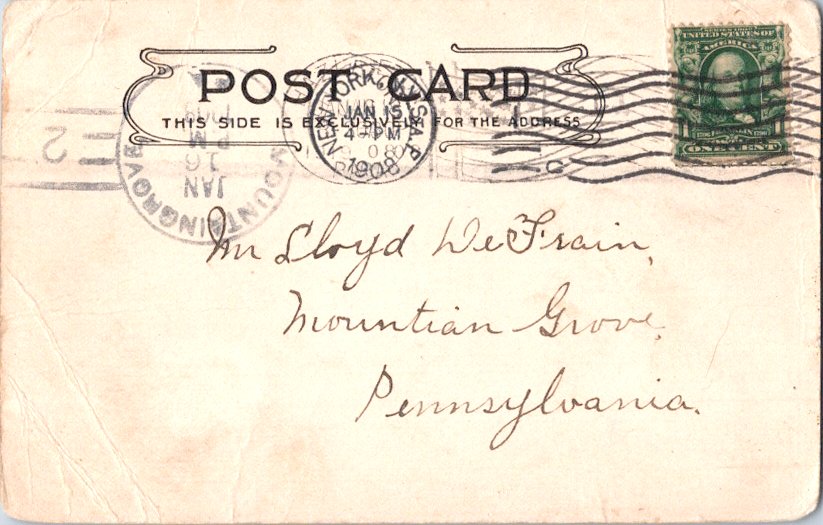 SERIES 1902
UNITED STATES OF
AMERICA
ONE CENT
POST CARD
THIS SIDE IS EXCLUSIVELY FOR THE ADDRESS
NEW YORK, N.Y. STA. P
JAN 15
4-PM
1908
MOUNTAINGROVE
JAN
16
PM
2
Mr Lloyd DeFrain,
Mountian Grove,
Pennsylvania.